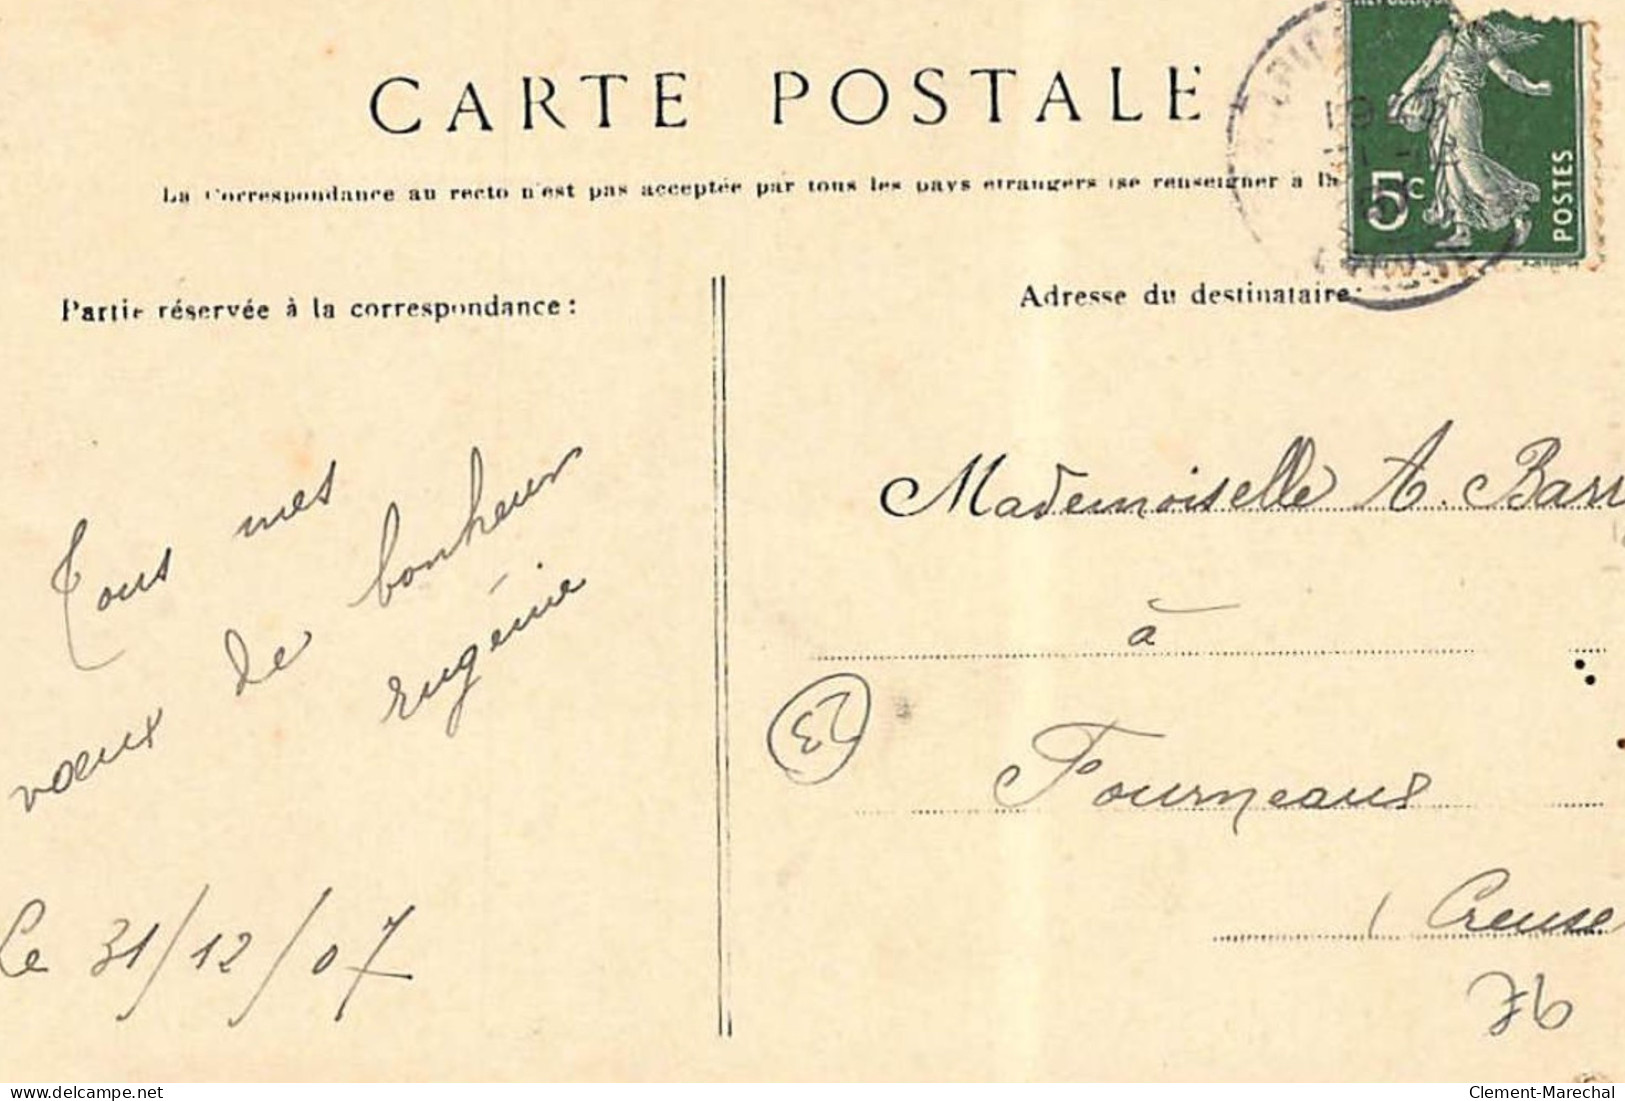 CARTE POSTALE
La Correspondance au recto n'est pas acceptée par tous les pays etrangers (se renseigner a la
5c
POSTES
Partie réservée à la correspondance :
Adresse du destinataire
Tous mes
voeux de bonheur
eugénie
Le 31/12/07
Mademoiselle A. Barr
à
Fourneaux
(Creuse
23
76
delcampe.net
Clement-Marechal